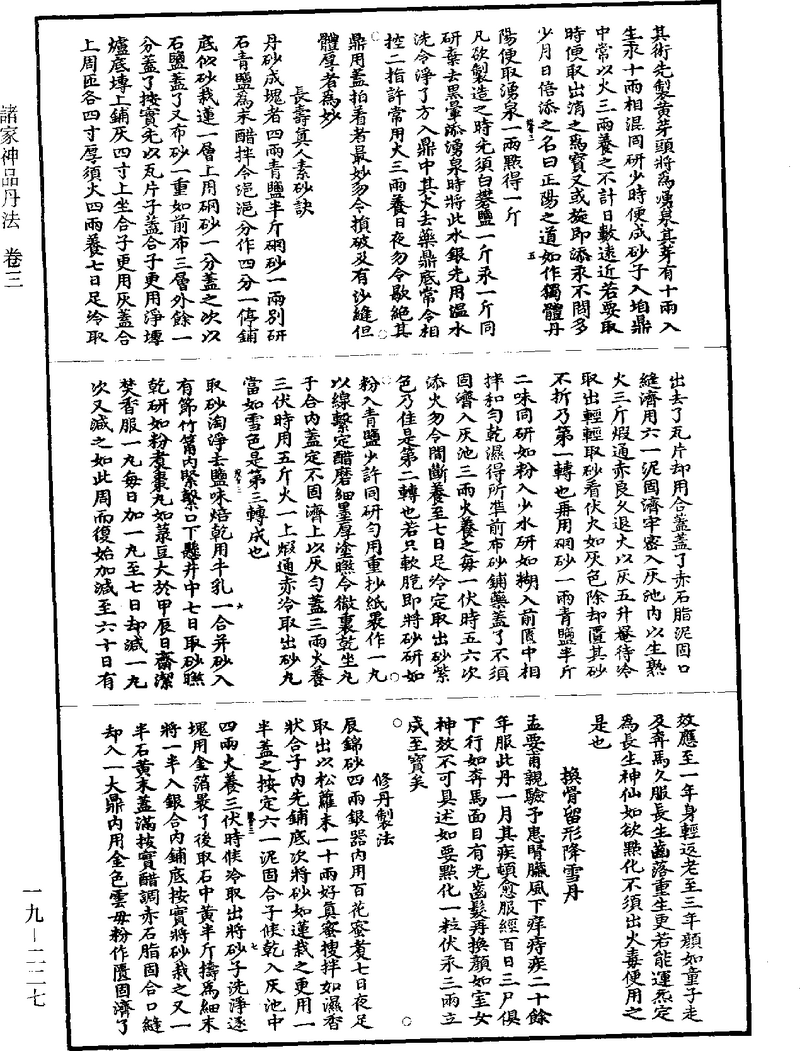 諸家神品丹法　卷三
其術先製黃芽頭將爲湧泉其芽有十兩入
生汞十兩相混同研少時便成砂子入垍鼎
中常以火三兩養之不計日數遠近若要取
時便取出消之爲寶又或旋即添汞不問多
少月日倍添之名曰正陽之道如作獨體丹
陽便取湧泉一兩㸃得一斤
凡欲製造之時先須白礬鹽一斤汞一斤同
研棄去黑暈添湧泉時將此水銀先用溫水
洗令淨了方入鼎中其火去藥鼎底常令相
控二指許常用火三兩養日夜勿令歇絕其
鼎用蓋拍著者最妙勿令損破及有沙縫但
體厚者爲妙
長壽眞人素砂訣
丹砂成塊者四兩青鹽半斤硇砂一兩別研
石青鹽爲末醋拌令浥浥分作四分一停鋪
底似砂栽蓮一層上用硇砂一分蓋之次以
石鹽蓋了又布砂一重如前布三層外餘一
分蓋了按實先以瓦片子蓋合子更用淨塼
爐底塼上鋪灰四寸上坐合子更用灰蓋合
上周匝各四寸厚須火四兩養七日足冷取
出去了瓦片却用合蓋蓋了赤石脂泥固口
縫濟用六一泥固濟牢密入灰池內以生熟
火三斤煆通赤良久退火以灰五升罨待冷
取出輕輕取砂看伏火如灰色除却匱其砂
不折乃第一轉也再用硇砂一兩青鹽半斤
二味同研如粉入少水研如糊入前匱中相
拌和勻乾濕得所準前布砂鋪藥蓋了不須
固濟入灰池三兩火養之每一伏時五六次
添火勿令間斷養至七日足冷定取出砂紫
色乃住是第二轉也若只軟脆即將砂研如
粉入青鹽少許同研勻用重抄紙裹作一丸
以線繫定醋磨細墨厚塗㬠令徹裏乾坐丸
子合內蓋定不固濟上以灰勻蓋三兩火養
三伏時用五斤火一上煆通赤冷取出砂丸
當如雪色是第三轉成也
取砂淘淨去鹽味焙乾用牛乳一合并砂入
有節竹筩內緊繫口下懸井中七日取砂㬠
乾研如粉煮棗丸如菉豆大於甲辰日齋潔
焚香服一丸每日加一丸至七日却減一丸
次又減之如此周而復始加減至六十日有
效應至一年身輕返老至三年顏如童子走
及奔馬久服長生齒落重生更若能運炁定
爲長生神仙如欲㸃化不須出火毒便用之
是也
換骨留形降雪丹
孟要甫親驗予患腎臟風下痒痔疾二十餘
年服此丹一月其疾頓愈服經百日三尸俱
下行如奔馬面目有光齒髮再換顏如室女
神效不可具述如要㸃化一粒伏汞三兩立
成至寶矣
修丹製法
辰錦砂四兩銀器內用百花蜜煮七日夜足
取出以松蘿末一十兩好眞蜜搜拌如濕香
狀合子內先鋪底次將砂如蓮栽之更用一
半蓋之按定六一泥固合子候乾入灰池中
四兩火養三伏時候冷取出將砂子洗淨逐
塊用金箔裹了後取石中黃半斤擣爲細末
將一半入銀合內鋪底按實將砂栽之又一
半石黃末蓋滿按實醋調赤石脂固合口縫
却入一大鼎內用金色雲母粉作匱固濟了
一九—二二七